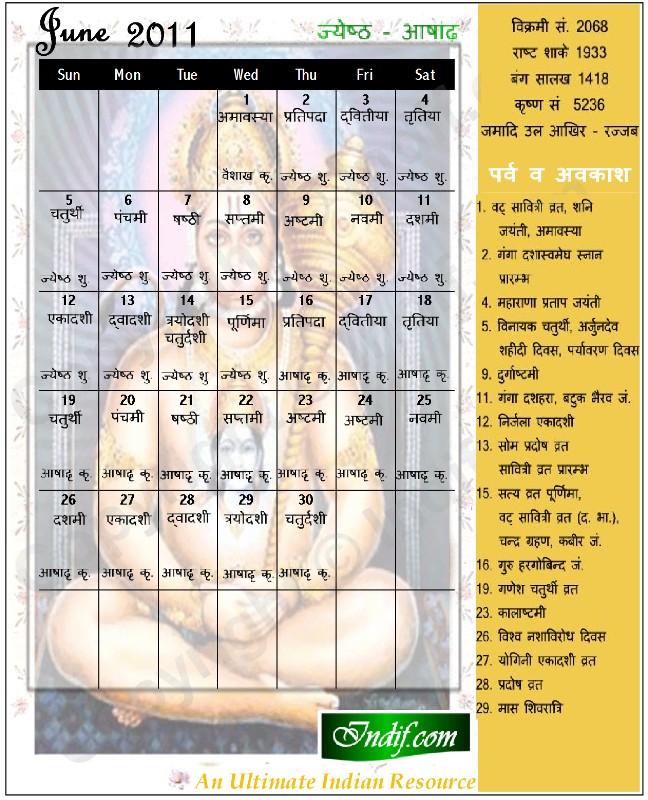 June 2011
ज्येष्ठ - आषाढ़
Sun Mon Tue Wed Thu Fri Sat
1 2 3 4
अमावस्या प्रतिपदा द्वितीया तृतिया
वैशाख कृ. ज्येष्ठ शु. ज्येष्ठ शु. ज्येष्ठ शु.
5 6 7 8 9 10 11
चतुर्थी पंचमी षष्ठी सप्तमी अष्टमी नवमी दशमी
ज्येष्ठ शु. ज्येष्ठ शु. ज्येष्ठ शु. ज्येष्ठ शु. ज्येष्ठ शु. ज्येष्ठ शु. ज्येष्ठ शु.
12 13 14 15 16 17 18
एकादशी द्वादशी त्रयोदशी पूर्णिमा प्रतिपदा द्वितीया तृतिया
चतुर्दशी
ज्येष्ठ शु. ज्येष्ठ शु. ज्येष्ठ शु. ज्येष्ठ शु. आषाढ़ कृ. आषाढ़ कृ. आषाढ़ कृ.
19 20 21 22 23 24 25
चतुर्थी पंचमी षष्ठी सप्तमी अष्टमी अष्टमी नवमी
आषाढ़ कृ. आषाढ़ कृ. आषाढ़ कृ. आषाढ़ कृ. आषाढ़ कृ. आषाढ़ कृ. आषाढ़ कृ.
26 27 28 29 30
दशमी एकादशी द्वादशी त्रयोदशी चतुर्दशी
आषाढ़ कृ. आषाढ़ कृ. आषाढ़ कृ. आषाढ़ कृ. आषाढ़ कृ.
विक्रमी सं. 2068
राष्ट शाके 1933
बंग सालख 1418
कृष्ण सं 5236
जमादि उल आखिर - रज्जब
पर्व व अवकाश
1. वट् सावित्री व्रत, शनि
जयंती, अमावस्या
2. गंगा दशास्वमेघ स्नान
प्रारम्भ
4. महाराणा प्रताप जयंती
5. विनायक चतुर्थी, अर्जुनदेव
शहीदी दिवस, पर्यावरण दिवस
9. दुर्गाष्टमी
11. गंगा दशहरा, बटुक भैरव जं.
12. निर्जला एकादशी
13. सोम प्रदोष व्रत
सावित्री व्रत प्रारम्भ
15. सत्य व्रत पूर्णिमा,
वट् सावित्री व्रत (द. भा.),
चन्द्र ग्रहण, कबीर जं.
16. गुरु हरगोबिन्द जं.
19. गणेश चतुर्थी व्रत
23. कालाष्टमी
26. विश्व नशाविरोध दिवस
27. योगिनी एकादशी व्रत
28. प्रदोष व्रत
29. मास शिवरात्रि
Indif.com
An Ultimate Indian Resource